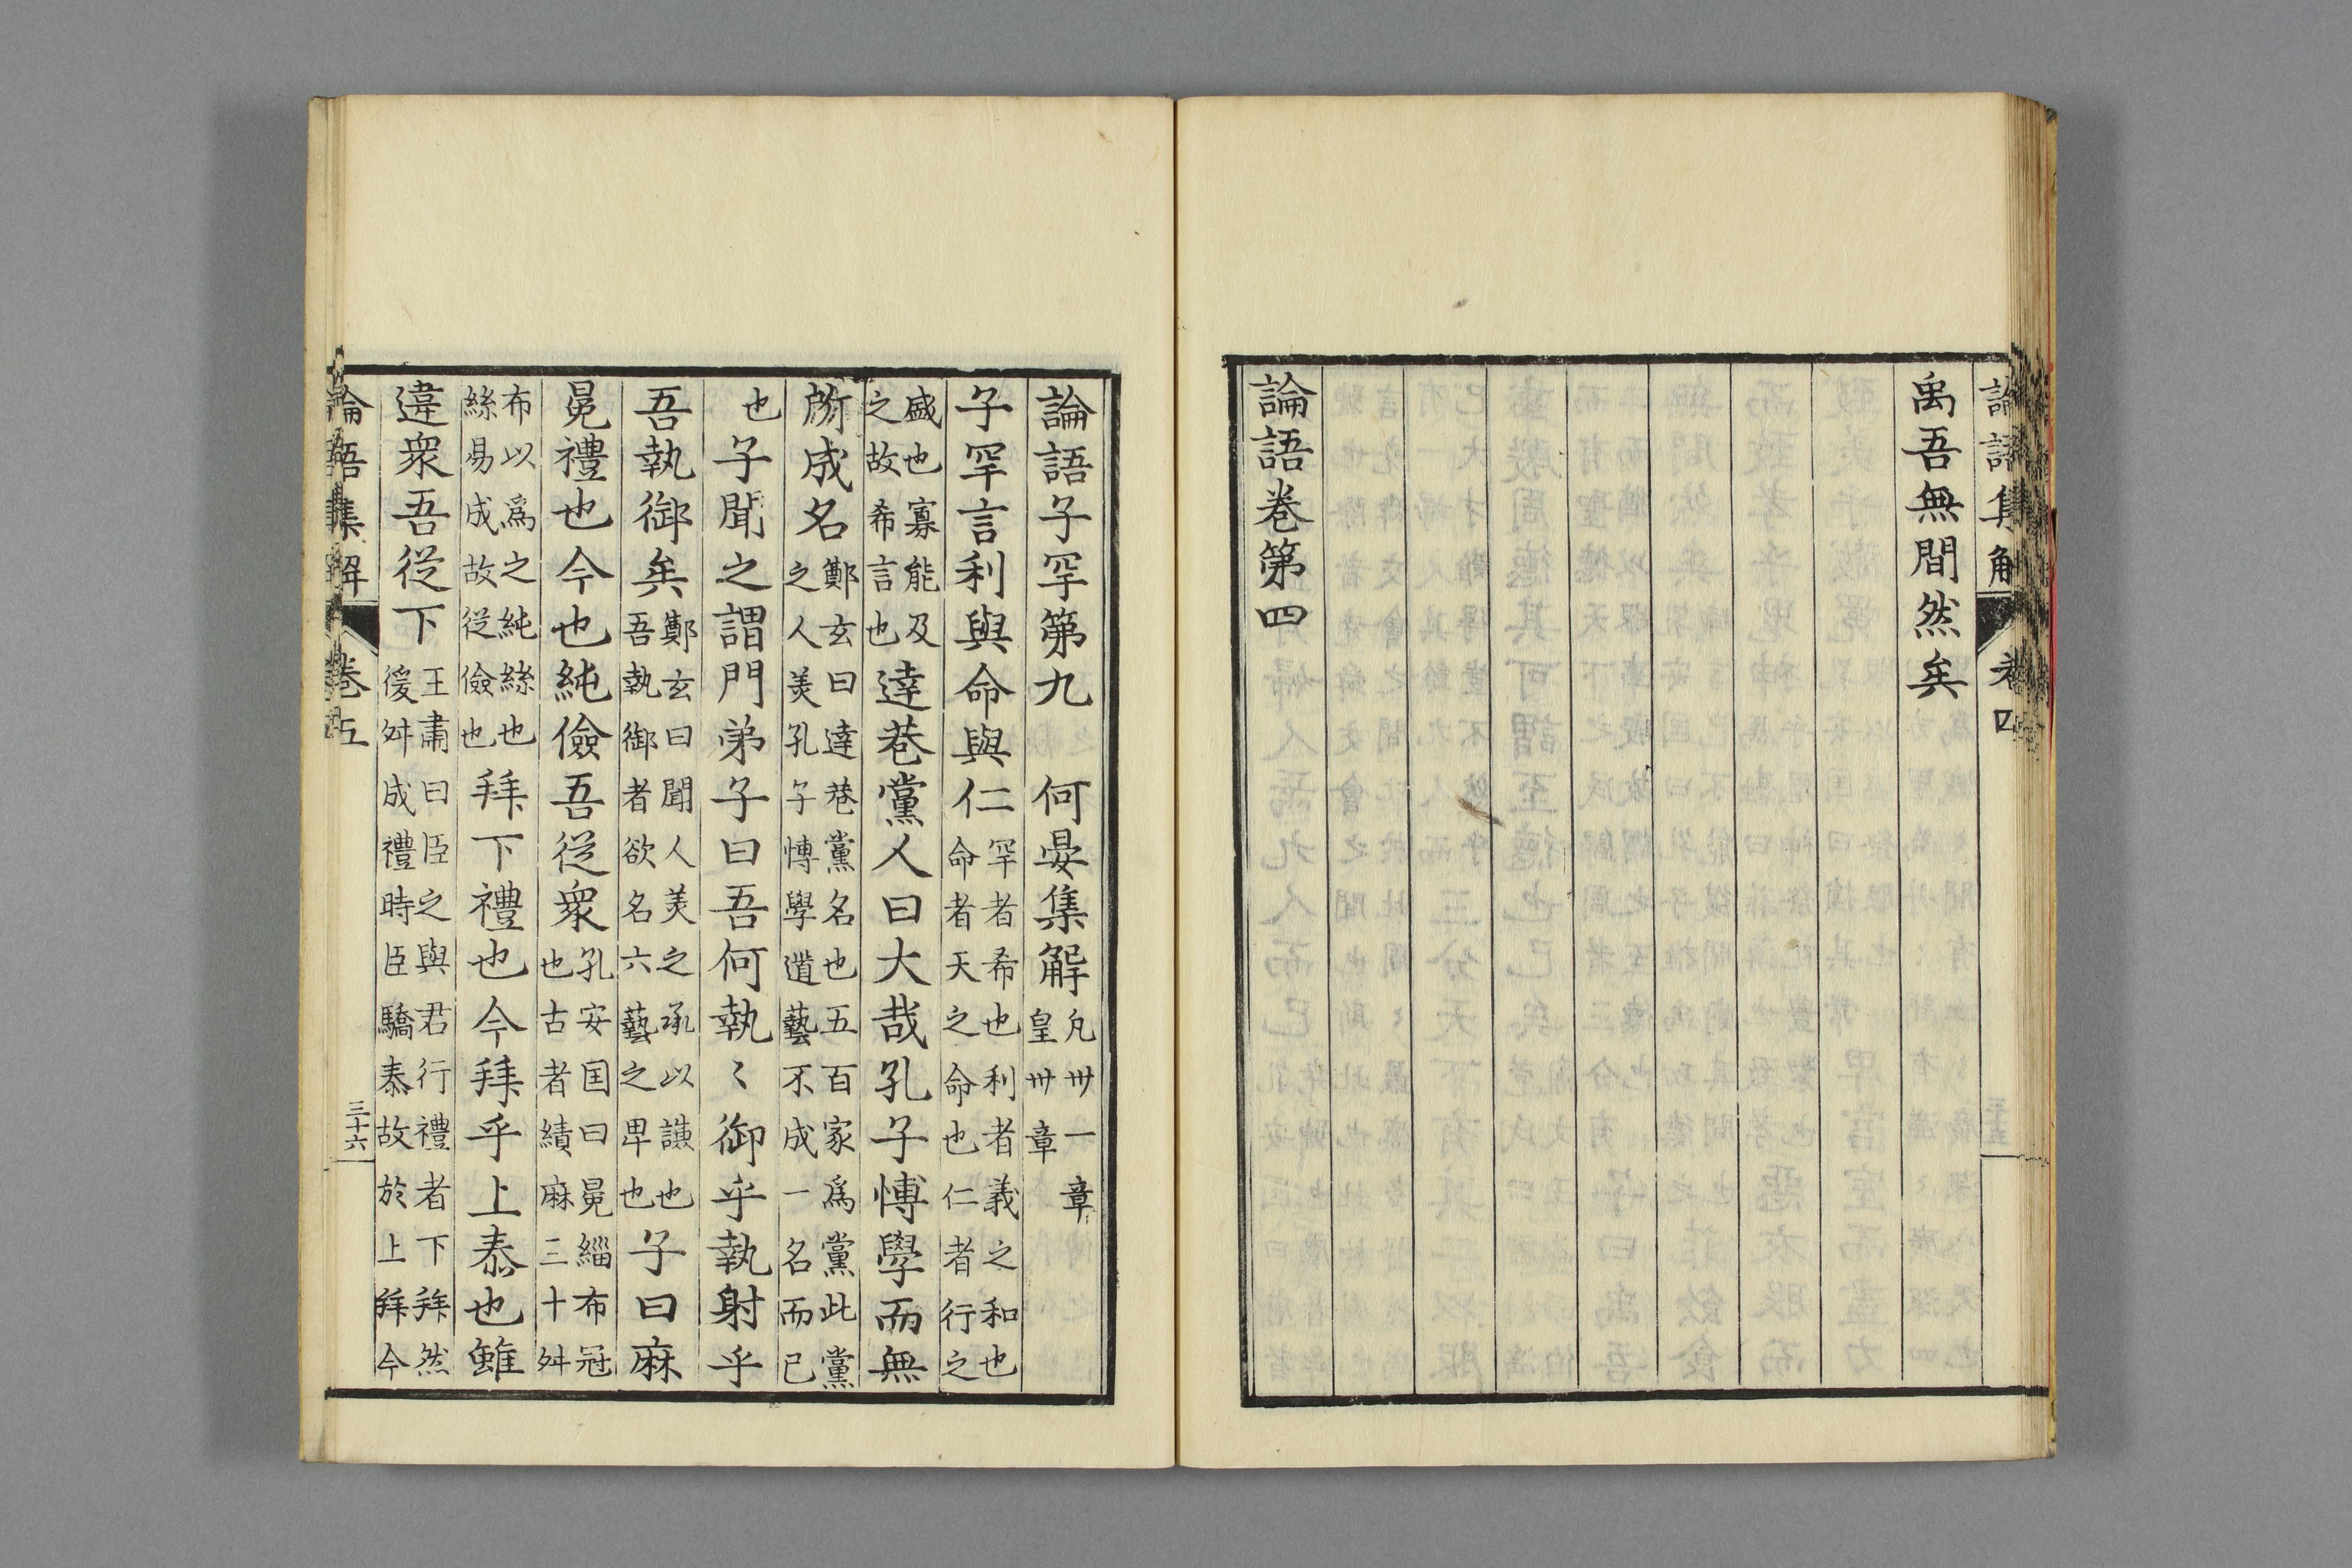 論語集解 卷四
禹吾無間然矣
論語卷第四
論語子罕第九 何晏集解 凡卅一章 皇卅章
子罕言利與命與仁 罕者希也利者義之和也 命者天之命也仁者行之
盛也寡能及 之故希言也 達巷黨人曰大哉孔子博學而無
所成名 鄭玄曰達巷黨名也五百家爲黨此黨 之人美孔子博學道藝不成一名而已
也 子聞之謂門弟子曰吾何執〻御乎執射乎
吾執御矣 鄭玄曰聞人美之承以謙也 吾執御者欲名六藝之卑也 子曰麻
冕禮也今也純儉吾從衆 孔安国曰冕緇布冠 也古者績麻三十舛
布以爲之純絲也 絲易成故從儉也 拜下禮也今拜乎上泰也雖
違衆吾從下 王肅曰臣之與君行禮者下拜然 後舛成禮時臣驕泰故於上拜今
論語集解 卷五
三十六